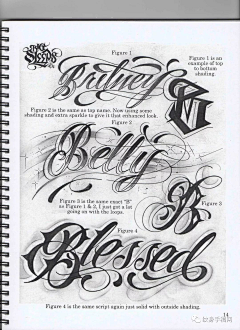 BIG
SLEEPS
Figure 1
Britney
Figure 1 is an
example of top
to bottom
shading.
B
Figure 2 is the same as top name. Now using some
shading and extra sparkle to give it that enhanced look.
Figure 2
Betty
Figure 3 is the same exact "B"
as Figure 1 & 2, I just got a lot
going on with the loops.
B
Figure 3
Figure 4
Blessed
Figure 4 is the same script again just solid with outside shading.
14